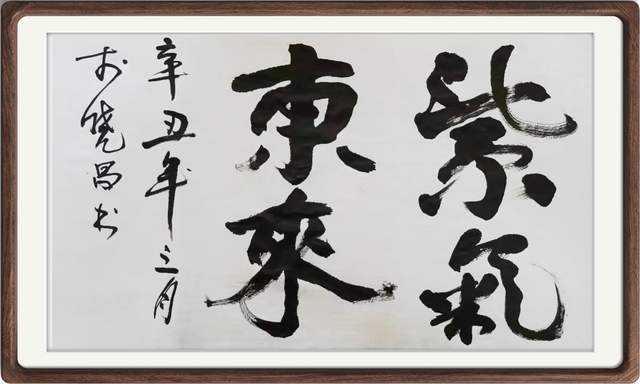 紫氣
東來
辛丑年三月
晓昌书